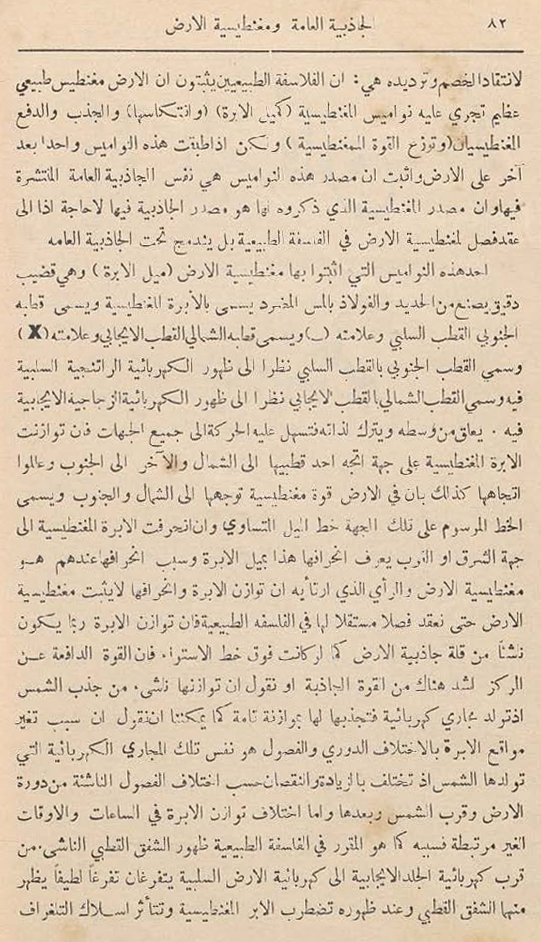 ٨٢ الجاذبية العامة ومغنطيسية الارض
لانتقاد الخصم وترديده هي: ان الفلاسفة الطبيعيين يثبتون ان الارض مغنطيس طبيعي
عظيم تجري عليه نواميس المغنطيسية (كميل الابرة) (وانتكاسها) والجذب والدفع
المغنطيسيان (وتوزع القوة المغنطيسية) ولكن اذا طبقت هذه النواميس واحدا بعد
آخر على الارض واثبت ان مصدر هذه النواميس هي نفس الجاذبية العامة المنتشرة
فيها وان مصدر المغنطيسية الذي ذكروه لها هو مصدر الجاذبية فيها لا حاجة اذا الى
عقد فصل لمغنطيسية الارض في الفلسفة الطبيعية بل يندمج تحت الجاذبية العامه
احد هذه النواميس التي اثبتوا بها مغنطيسية الارض (ميل الابرة) وهي قضيب
دقيق يصنع من الحديد والفولاذ بالمس المنفرد يسمى بالأبرة المغنطيسية ويسمى قطبه
الجنوبي القطب السلبي وعلامته (ـ) ويسمى قطبه الشمالي القطب الايجابي وعلامته (X)
وسمي القطب الجنوبي بالقطب السلبي نظرا الى ظهور الكهربائية الراتنجية السلبية
فيه وسمي القطب الشمالي بالقطب الايجابي نظرا الى ظهور الكهربائية الزجاجية الايجابية
فيه . يعلق من وسطه ويترك لذاته فتسهل عليه الحركة الى جميع الجهات فان توازنت
الابرة المغنطيسية على جهة اتجه احد قطبيها الى الشمال والآخر الى الجنوب وعللوا
اتجاهها كذلك بان في الارض قوة مغنطيسية توجهها الى الشمال والجنوب ويسمى
الخط المرسوم على تلك الجهة خط الميل المتساوي وان انحرفت الابرة المغنطيسية الى
جهة الشرق او الغرب يعرف انحرافها هذا بميل الابرة وسبب انحرافها عندهم هو
مغنطيسية الارض والرأي الذي ارتأيه ان توازن الابرة وانحرافها لا يثبت مغنطيسية
الارض حتى نعقد فصلا مستقلا لها في الفلسفه الطبيعية فان توازن الابرة ربما يكون
ناشئا من قلة جاذبية الارض كما لو كانت فوق خط الاستواء. فان القوة الدافعة عن
المركز اشد هناك من القوة الجاذبة او نقول ان توازنها ناشىء من جذب الشمس
اذ تولد مجاري كهربائية فتجذبها لها بموازنة تامة كما يمكننا ان نقول ان سبب تغير
مواقع الابرة بالاختلاف الدوري والفصول هو نفس تلك المجاري الكهربائية التي
تولدها الشمس اذ تختلف بالزيادة والنقصان حسب اختلاف الفصول الناشئة من دورة
الارض وقرب الشمس وبعدها واما اختلاف توازن الابرة في الساعات والاوقات
الغير مرتبطة فسببه كما هو المقرر في الفلسفة الطبيعية ظهور الشفق القطبي الناشىء من
قرب كهربائية الجلد الايجابية الى كهربائية الارض السلبية يتفرغان تفرغاً لطيفاً يظهر
منهما الشفق القطبي وعند ظهوره تضطرب الابر المغنطيسية وتتأثر اسلاك التلغراف